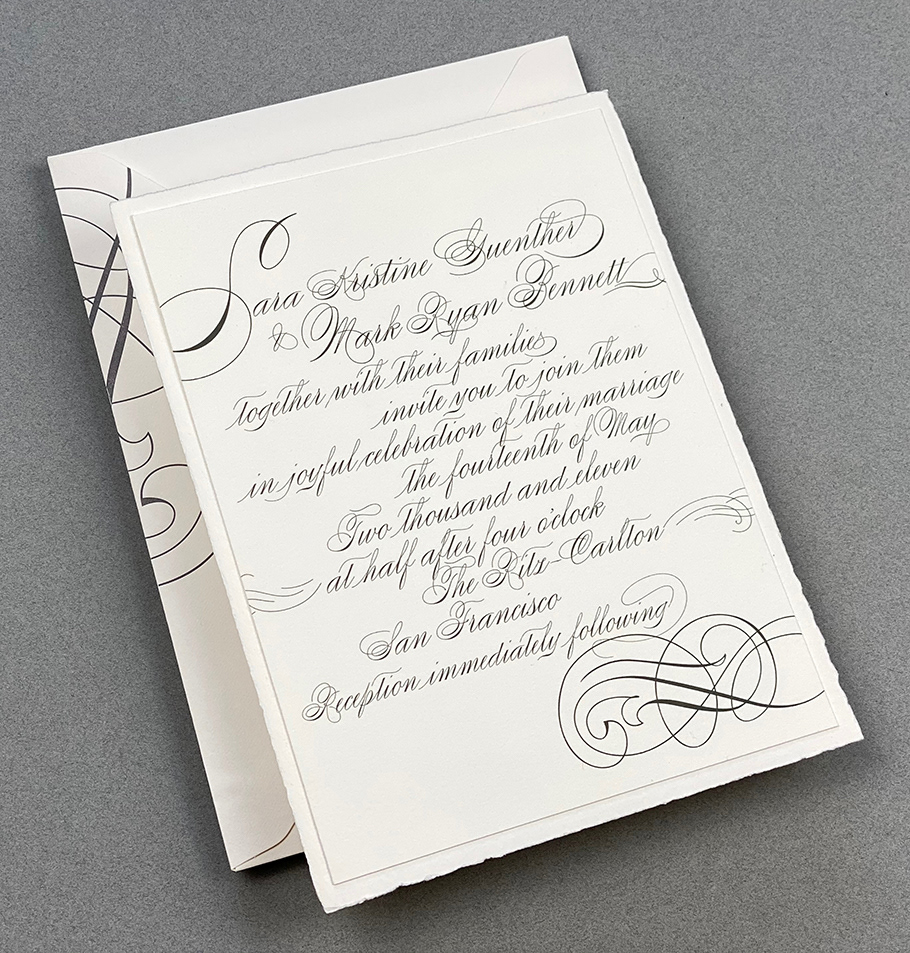 Sara Kristine Guenther
& Mark Ryan Bennett
together with their families
invite you to join them
in joyful celebration of their marriage
the fourteenth of May
Two thousand and eleven
at half after four o'clock
The Ritz-Carlton
San Francisco
Reception immediately following